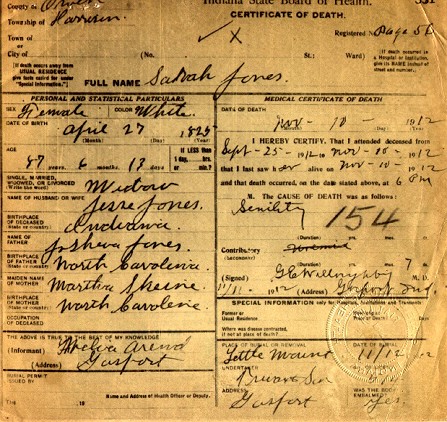 County of
Indiana State Board of Health.
Township of Harrison
CERTIFICATE OF DEATH.
Town of
Registered No. Page 56
or
City of (No. St.; Ward)
If death occurs away from USUAL RESIDENCE give facts called for under "Special Information."
If death occurred in a Hospital or Institution, give its NAME instead of street and number.
FULL NAME Sarah Jones.
PERSONAL AND STATISTICAL PARTICULARS
SEX Female
COLOR White
DATE OF BIRTH
April 27 1825
87 years, 6 months, 13 days
IF LESS than 1 day, hrs. or min.
SINGLE, MARRIED, WIDOWED, OR DIVORCED
(Write the word) Widow
NAME OF HUSBAND OR WIFE
Jesse Jones.
BIRTHPLACE OF DECEASED
Indiana
NAME OF FATHER
Joshua Jones.
BIRTHPLACE OF FATHER
North Carolina
MAIDEN NAME OF MOTHER
Martha
BIRTHPLACE OF MOTHER
North Carolina
OCCUPATION OF DECEASED
THE ABOVE IS TRUE TO THE BEST OF MY KNOWLEDGE
(Informant) Arend
(Address) Gosport
BURIAL PERMIT ISSUED BY
Name and Address of Health Officer or Deputy.
THE 19
MEDICAL CERTIFICATE OF DEATH
DATE OF DEATH
Nov - 10 - 1912
I HEREBY CERTIFY, That I attended deceased from
Sept - 25 - 1912 to Nov - 10 1912
that I last saw her alive on Nov - 10 - 1912
and that death occurred, on the date stated above, at 6 P
M. The CAUSE OF DEATH was:
Senility
154
(Duration) yrs. mos. ds.
Contributory
(Secondary)
(Duration) yrs. mos. 7 ds.
(Signed) G.E. Willoughby M. D.
11/11 - 1912 (Address) Gosport Ind
SPECIAL INFORMATION only for Hospitals, Institutions and Transients
Former or Usual Residence
How long at Place of Death? Days
Where was disease contracted, if not at place of death?
PLACE OF BURIAL OR REMOVAL
Little Mount
DATE OF BURIAL
11/12 1912
UNDERTAKER
Gosport
WAS THE BODY EMBALMED?
Yes.